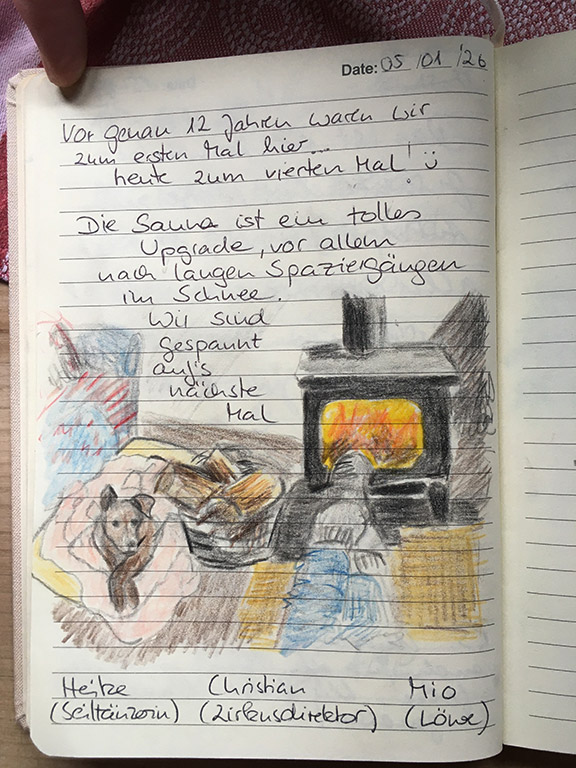 Date: 05 / 01 / '26
Vor genau 12 Jahren waren wir
zum ersten Mal hier...
heute zum vierten Mal! :)
Die Sauna ist ein tolles
Upgrade, vor allem
nach langen Spaziergängen
im Schnee.
Wir sind
gespannt
auf's
nächste
Mal
Heike Christian Mio
(Seiltänzerin) (Zirkusdirektor) (Löwe)